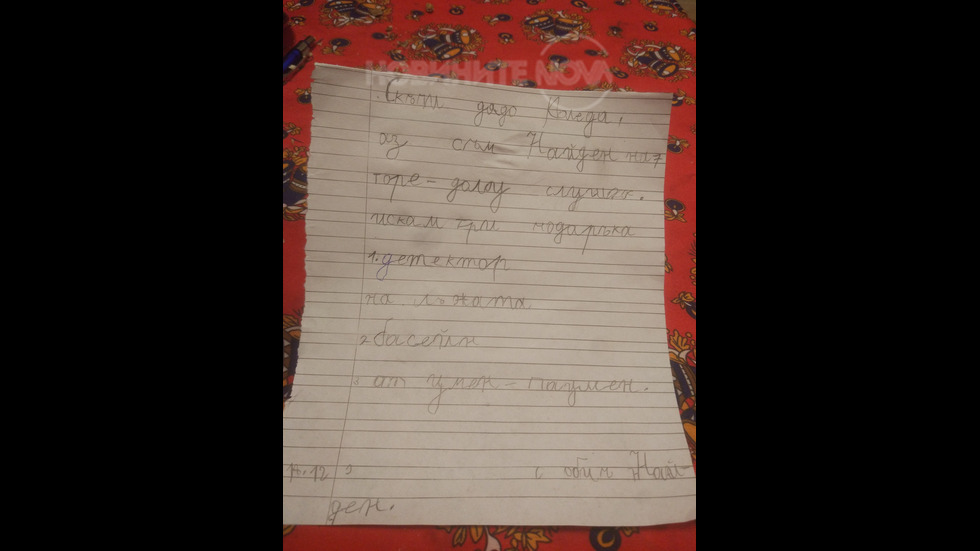 НОВИНИТЕ NOVA
Скъпи дядо Коледа,
аз съм Найден на 7
горе-долу слушах.
искам три подаръка
1. детектор
на лъжата
2 басейн
3 от умен-поумен.
14.12
с обич Най-
ден.